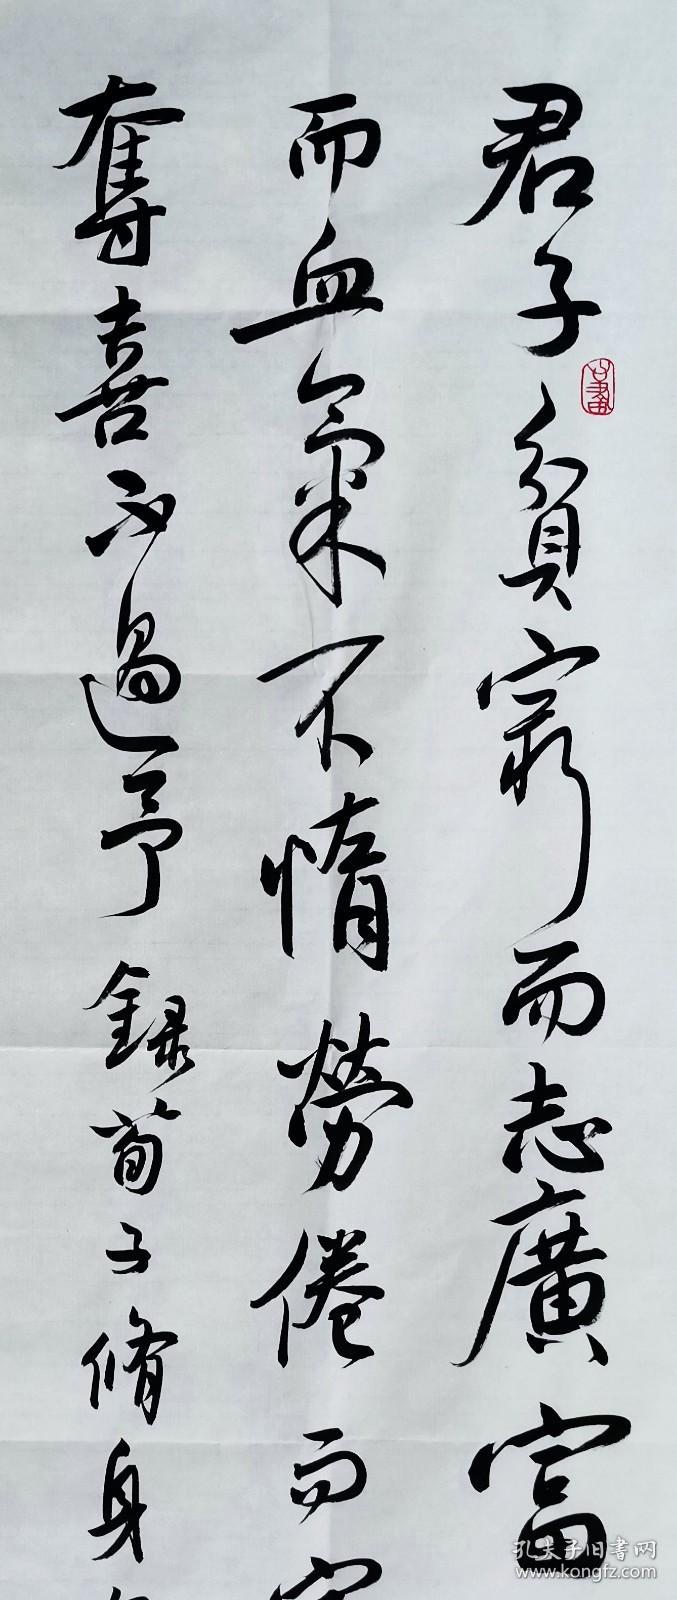 君子貧窮而志廣富
而血氣不惰勞倦而容
奪喜不過予錄荀子脩身
孔夫子旧书网
www.kongfz.com